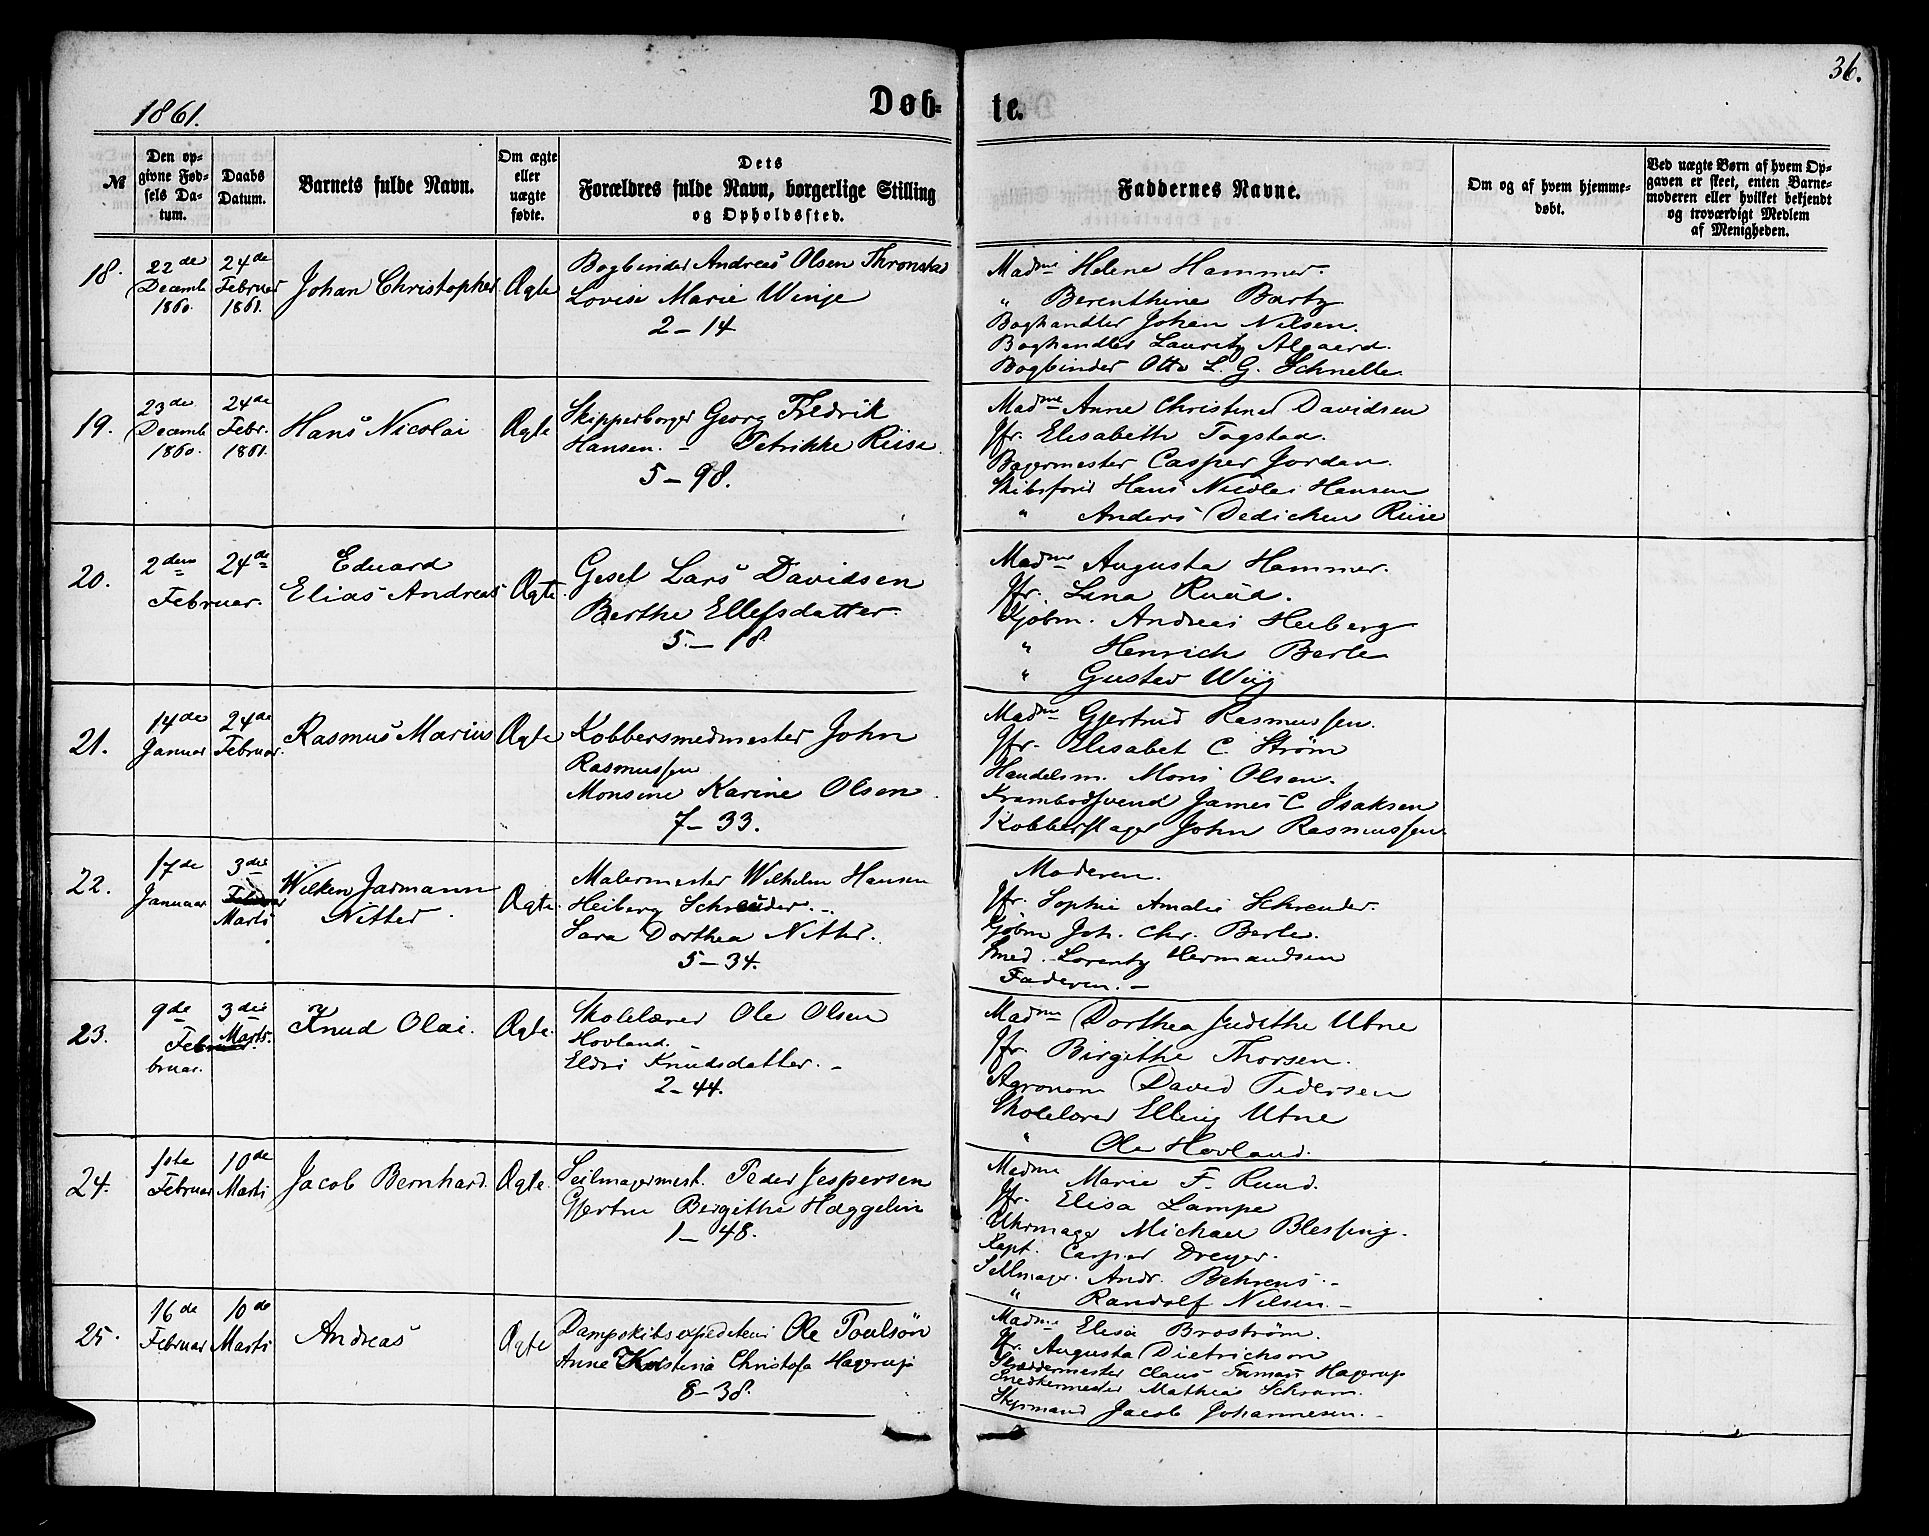 36.
1861.
Døb-
te.
№
Den op-
givne Fød-
sels Da-
tum.
Daabs
Datum.
Barnets fulde Navn.
Om ægte
eller
uægte
fødte.
Dets
Forældres fulde Navn, borgerlige Stilling
og Opholdssted.
Faddernes Navne.
Om og af hvem hjemme-
døbt.
Ved uægte Børn af hvem Op-
gaven er skeet, enten Barne-
moderen eller hvilket bekjendt
og troværdigt Medlem
af Menigheden.
18.
22de
Decemb
1860.
24de
Februar
1861.
Johan Christopher
Ægte
Bogbinder Andreas Olsen Thronstad
Lovise Marie Winje
2 – 14
Madme Helene Hammer.
" Berenthine Bartz
Boghandler Johan Nilsen.
Boghandler Lauritz Algaard.
Bogbinder Otto L. G. Schnelle.
19.
23de
Decemb
1860.
24de
Febr.
1861.
Hans Nicolai
Ægte
Skipperborger Georg Fredrik
Hansen. – Petrikke Riise.
5 – 98.
Madme Anne Christine Davidsen
Jfr. Elisabeth Fogstad.
Bagermester Casper Jordan.
Skibsfører Hans Nicolai Hansen
" Anders Dedichen Riise
20.
2den
Februar.
24de
Eduard
Elias Andreas
Ægte.
Gesel Lars Davidsen
Berthe Ellefsdatter.
5. – 18.
Madme Augusta Hammer.
Jfr. Lina Ruud.
Kjøbm. Andreas Heiberg
" Henrich Berle
" Gustav Wiig
21.
14de
Januar
24de
Februar.
Rasmus Marius
Ægte
Kobbersmedmester John
Rasmussen
Monsine Karine Olsen.
7 – 33.
Madme Gjertrud Rasmussen.
Jfr. Elisabet C. Strøm
Handelsm. Mons Olsen.
Krambodsvend James C Isaksen
Kobberslager John Rasmussen
22.
17de
Januar
3die
Februar
Marts
Wilken Jarmann
Nitter.
Ægte.
Malermester Wilhelm Hansen
Heiberg Schreuder. –
Sara Dorthea Nitter.
5 – 34.
Moderen.
Jfr. Sophie Amalie Schreuder.
Kjøbm Joh. Chr. Berle.
Smed. Lorentz Hermandsen
Faderen. –
23.
9de
Februar.
bruar.
3die
Marts.
Knud Olai.
Ægte.
Skolelærer Ole Olsen
Hovland.
Eldri Knudsdatter. –
2 – 44.
Madme Dorthea Judithe Utne
Jfr. Birgithe Thorsen.
Agronom David Pedersen
Skolelærer Elling Utne
" Ole Hovland.
24.
1ste
Februar
10de
Marts
Jacob Bernhard.
Ægte.
Seilmagermest. Peder Jespersen
Gjertru Bergithe Hæggelin
1 – 48.
Madme Marie F. Ruud.
Jfr. Elisa Lampe
Uhrmager Michael Blessing.
Kapt. Casper Dreyer.
Seilmager. Andr. Behrens. –
" Randolf Nilsen. –
25.
16de
Februar
10de
Marts
Andreas
Ægte
Dampskibsexpediteur Ole Poulsøn
Anne Kristina Christofa Hagerup
8 – 38.
Madme Elisa Broström.
Jfr. Augusta Dietrichson
Skræddermester Claus Hagerup
Snedkermester Mathias Schram.
Styrmand Jacob Johannesen. –